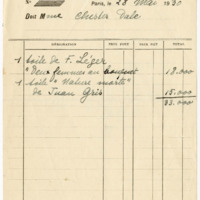 N°
Paris, le 28 Mai 1930
Doit M Chester Dale
DÉSIGNATION PRIX TOTAL
1 toile de F. Léger
"Deux femmes au bouquet" 18.000
1 toile "Nature morte"
de Juan Gris 15.000
33.000